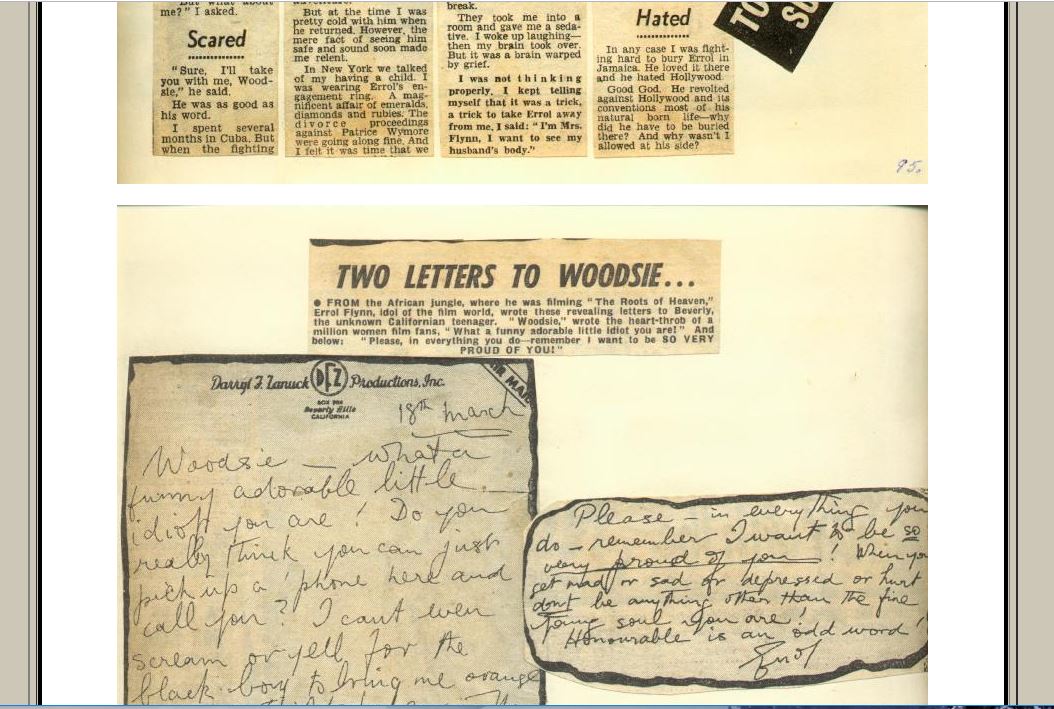 me?" I asked.
Scared
"Sure, I'll take
you with me, Wood-
sie," he said.
He was as good as
his word.
I spent several
months in Cuba. But
when the fighting
But at the time I was
pretty cold with him when
he returned. However, the
mere fact of seeing him
safe and sound soon made
me relent.
In New York we talked
of my having a child. I
was wearing Errol's en-
gagement ring. A mag-
nificent affair of emeralds,
diamonds and rubies. The
divorce proceedings
against Patrice Wymore
were going along fine. And
I felt it was time that we
break.
They took me into a
room and gave me a seda-
tive. I woke up laughing—
then my brain took over.
But it was a brain warped
by grief.
I was not thinking
properly. I kept telling
myself that it was a trick,
a trick to take Errol away
from me. I said: "I'm Mrs.
Flynn, I want to see my
husband's body."
Hated
In any case I was fight-
ing hard to bury Errol in
Jamaica. He loved it there
and he hated Hollywood.
Good God. He revolted
against Hollywood and its
conventions most of his
natural born life—why
did he have to be buried
there? And why wasn't I
allowed at his side?
TO
SO
95.
TWO LETTERS TO WOODSIE...
● FROM the African jungle, where he was filming "The Roots of Heaven,"
Errol Flynn, idol of the film world, wrote these revealing letters to Beverly,
the unknown Californian teenager. "Woodsie," wrote the heart-throb of a
million women film fans, "What a funny adorable little idiot you are!" And
below: "Please, in everything you do—remember I want to be SO VERY
PROUD OF YOU!"
Darryl F. Zanuck DFZ Productions, Inc.
BOX 900
Beverly Hills
CALIFORNIA
AIR MAIL
18th March
Woodsie — what a
funny adorable little
idiot you are! Do you
really think you can just
pick up a 'phone here and
call you? I can't even
scream or yell for the
black boy to bring me orange
Please — in everything you
do — remember I want to be so
very proud of you! When you
get mad or sad or depressed or hurt
dont be anything other than the fine
young soul you are!
Honourable is an odd word!
Errol